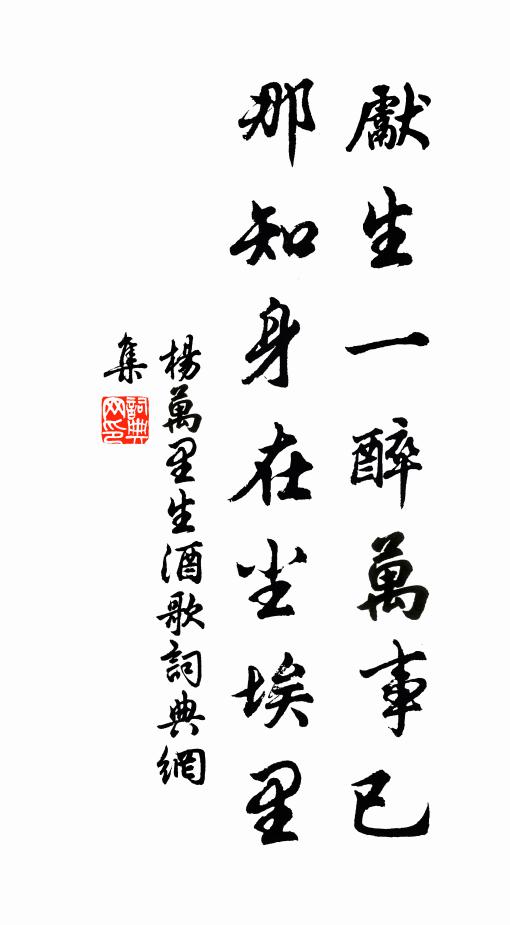 獻生一醉萬事已
那知身在尘埃里
楊萬里生酒歌詞典網
集
詞典
网印